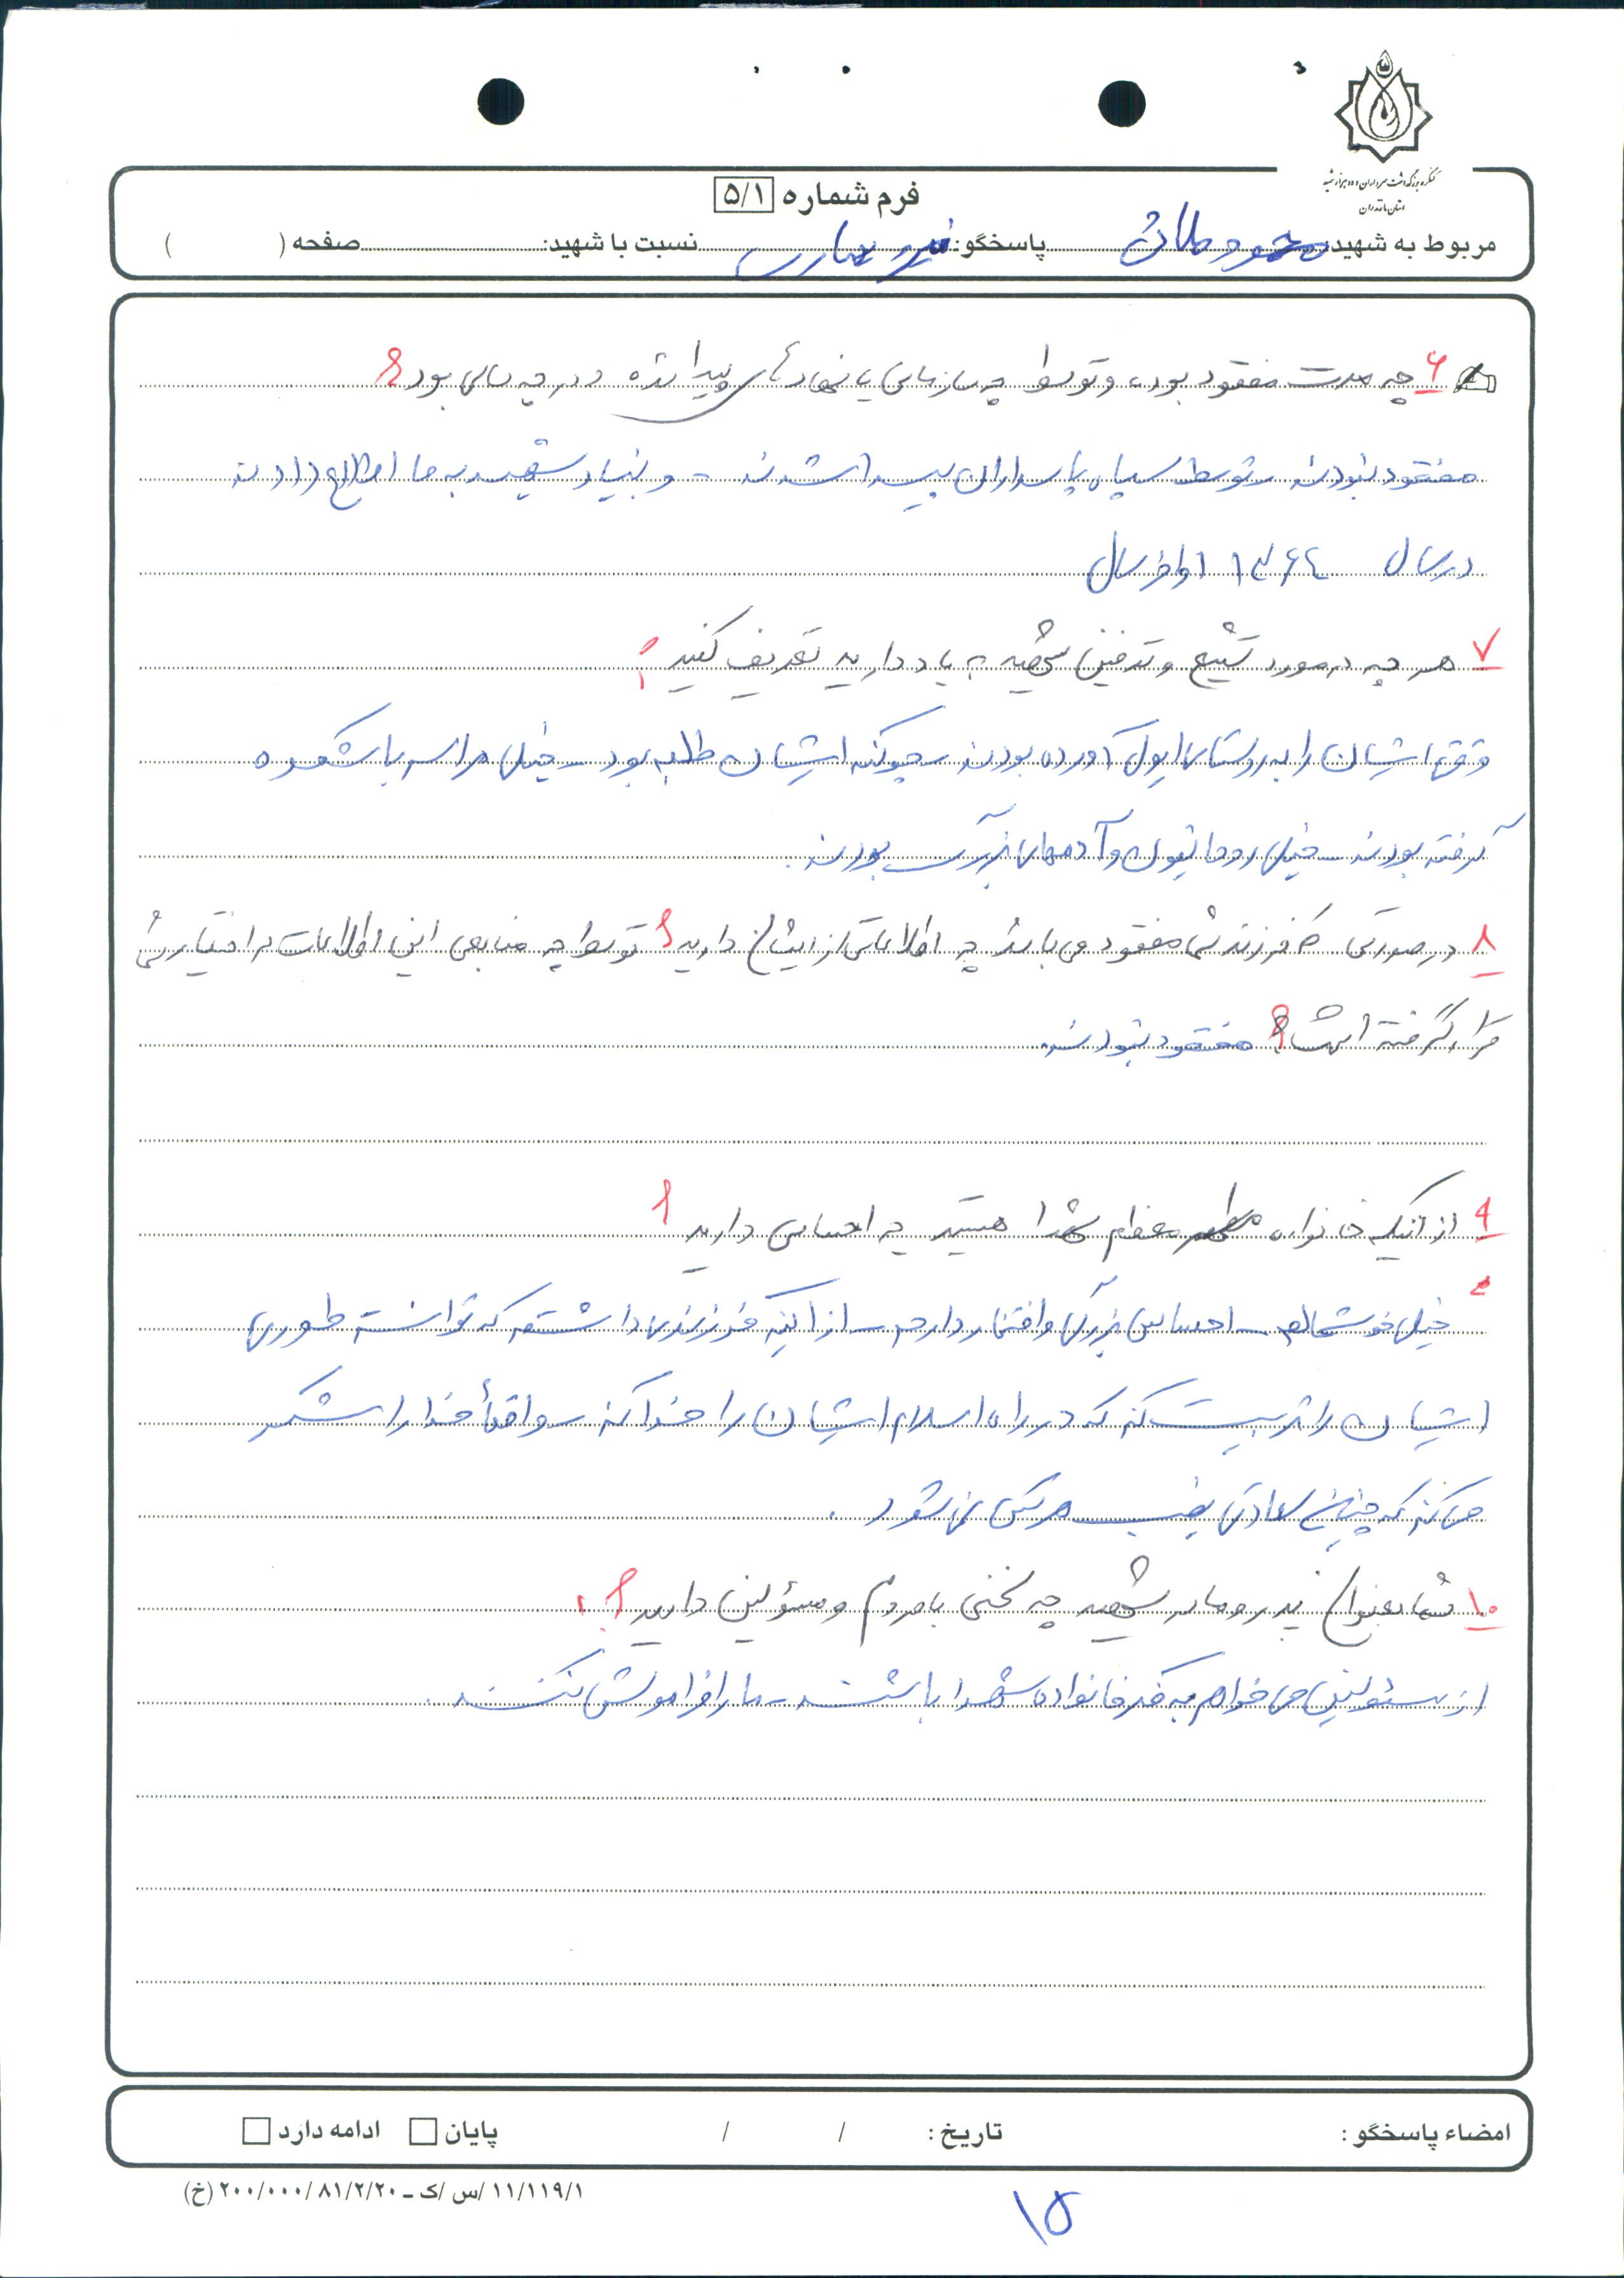 کنگره بزرگداشت سرداران و ده هزار شهید
استان مازندران
فرم شماره ۵/۱
مربوط به شهید: محمود ملائی پاسخگو: نسبت با شهید: صفحه ( )
۶ چه مدت مفقود بود، و توسط چه سازمانی یا نهادهای پیدا شده و در چه سالی بود؟
مفقود نبودند توسط سپاه پاسداران پیدا شدند - و بنیاد شهید به ما اطلاع دادند
در سال ۱۳۶۴ اواخر سال
۷ هر چه در مورد تشیع و تدفین شهید به یاد دارید تعریف کنید؟
وقتی ایشان را به روستای ایول آورده بودند - چونکه ایشان طلبه بود - خیلی مراسم باشکوه
گرفته بودند - خیلی روحانیون و آدمهای بزرگ بودند.
۸ در صورتی که فرزند شما مفقود می باشد چه اطلاعاتی از ایشان دارید؟ توسط چه منابعی این اطلاعات در اختیار شما
قرار گرفته است؟ مفقود نبودند.
۹ از اینکه خانواده معظم شهدا هستید چه احساسی دارید؟
خیلی خوشحالم - احساس بزرگی و افتخار دارم - از اینکه فرزندی داشتم که توانستم طوری
ایشان را تربیت کنم که در راه اسلام ایشان را فدا کنم - واقعأ خدا را شکر
می کنم که چنین سعادتی نصیب هر کس نمی شود.
۱۰ شما بعنوان پدر و مادر شهید چه سخنی با مردم و مسؤلین دارید؟
از مسئولین می خواهم به فکر خانواده شهدا باشند - ما را فراموش نکنند.
امضاء پاسخگو : تاریخ : / / پایان ادامه دارد
۱۱/۱۱۹/۱ /س /ک – ۸۱/۲/۲۰ /۲۰۰/۰۰۰ (خ)
۱۵